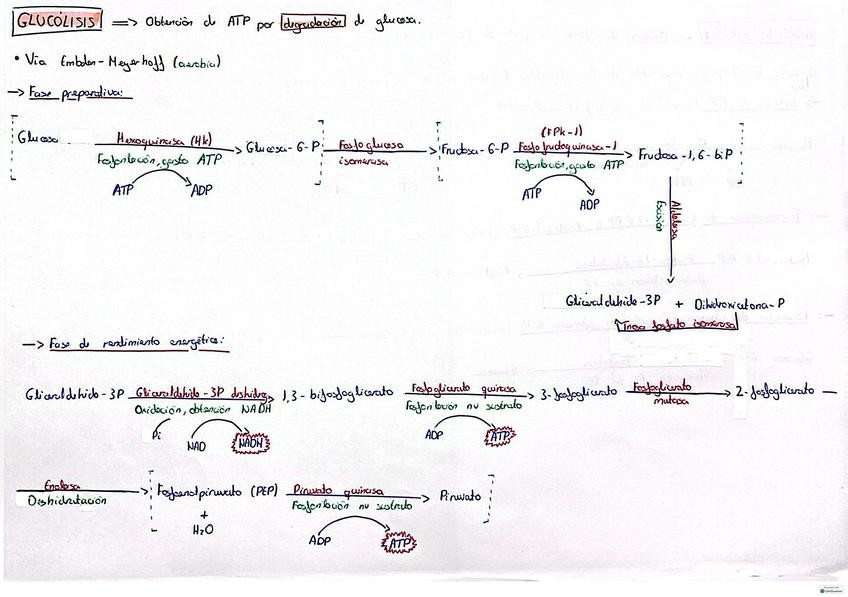 GLUCÓLISIS => Obtención de ATP por degradación de glucosa.
• Vía Embden-Meyerhoff (aerobia)
-> Fase preparativa:
Glucosa Hexoquinasa (Hk) Glucosa-6-P Fosfoglucosa isomerasa Fructosa-6-P (FPk-1) Fosfofructoquinasa-1 Fructosa-1,6-biP
Fosforilación, gasto ATP Fosforilación, gasto ATP
ATP ADP ATP ADP
Aldolasa
Escisión
Gliceraldehído-3P + Dihidroxicetona-P
Triosa fosfato isomerasa
-> Fase de rendimiento energético:
Gliceraldehído-3P Gliceraldehído-3P deshidrg 1,3-bifosfoglicerato Fosfoglicerato quinasa 3-fosfoglicerato Fosfoglicerato mutasa 2-fosfoglicerato
Oxidación, obtención NADH Fosforilación nv sustrato
Pi NAD NADH ADP ATP
Enolasa Fosfoenolpiruvato (PEP) Piruvato quinasa Piruvato
Deshidratación Fosforilación nv sustrato
+
H2O
ADP ATP